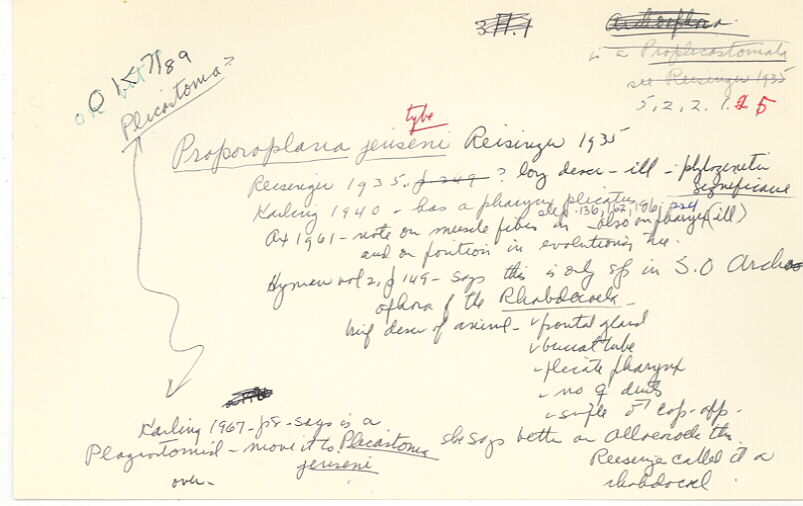 311.1
Archoophora
is a Proplicastomata
see Reisinger 1935
5, 2, 2, 1. 25
OK 7/89
Plicastoma?
type
Proporoplana jenseni Reisinger 1935
Reisenger 1935. p 249 ? long descr - ill - phylogenetic significance
Karling 1940 - has a pharynx plicatus
see p. 136, 162, 196, 224
Ax 1961 - note on muscle fibers in - also on pharynx (ill)
and on position in evolutionary tree.
Hyman vol 2, p 149 - says this is only sp in S.O Archo
ophora of the Rhabdocoela -
brief descr of animal - ✓ frontal gland
✓ buccal tube
- plicate pharynx
- no ♀ ducts
- simple ♂ cop. app.
Karling 1967 - p 8 - says is a
Plagiostomid - move it to Plicastoma
jenseni
she says better an alloeocoele tho
Reisenge called it a
rhabdocoel.
over -